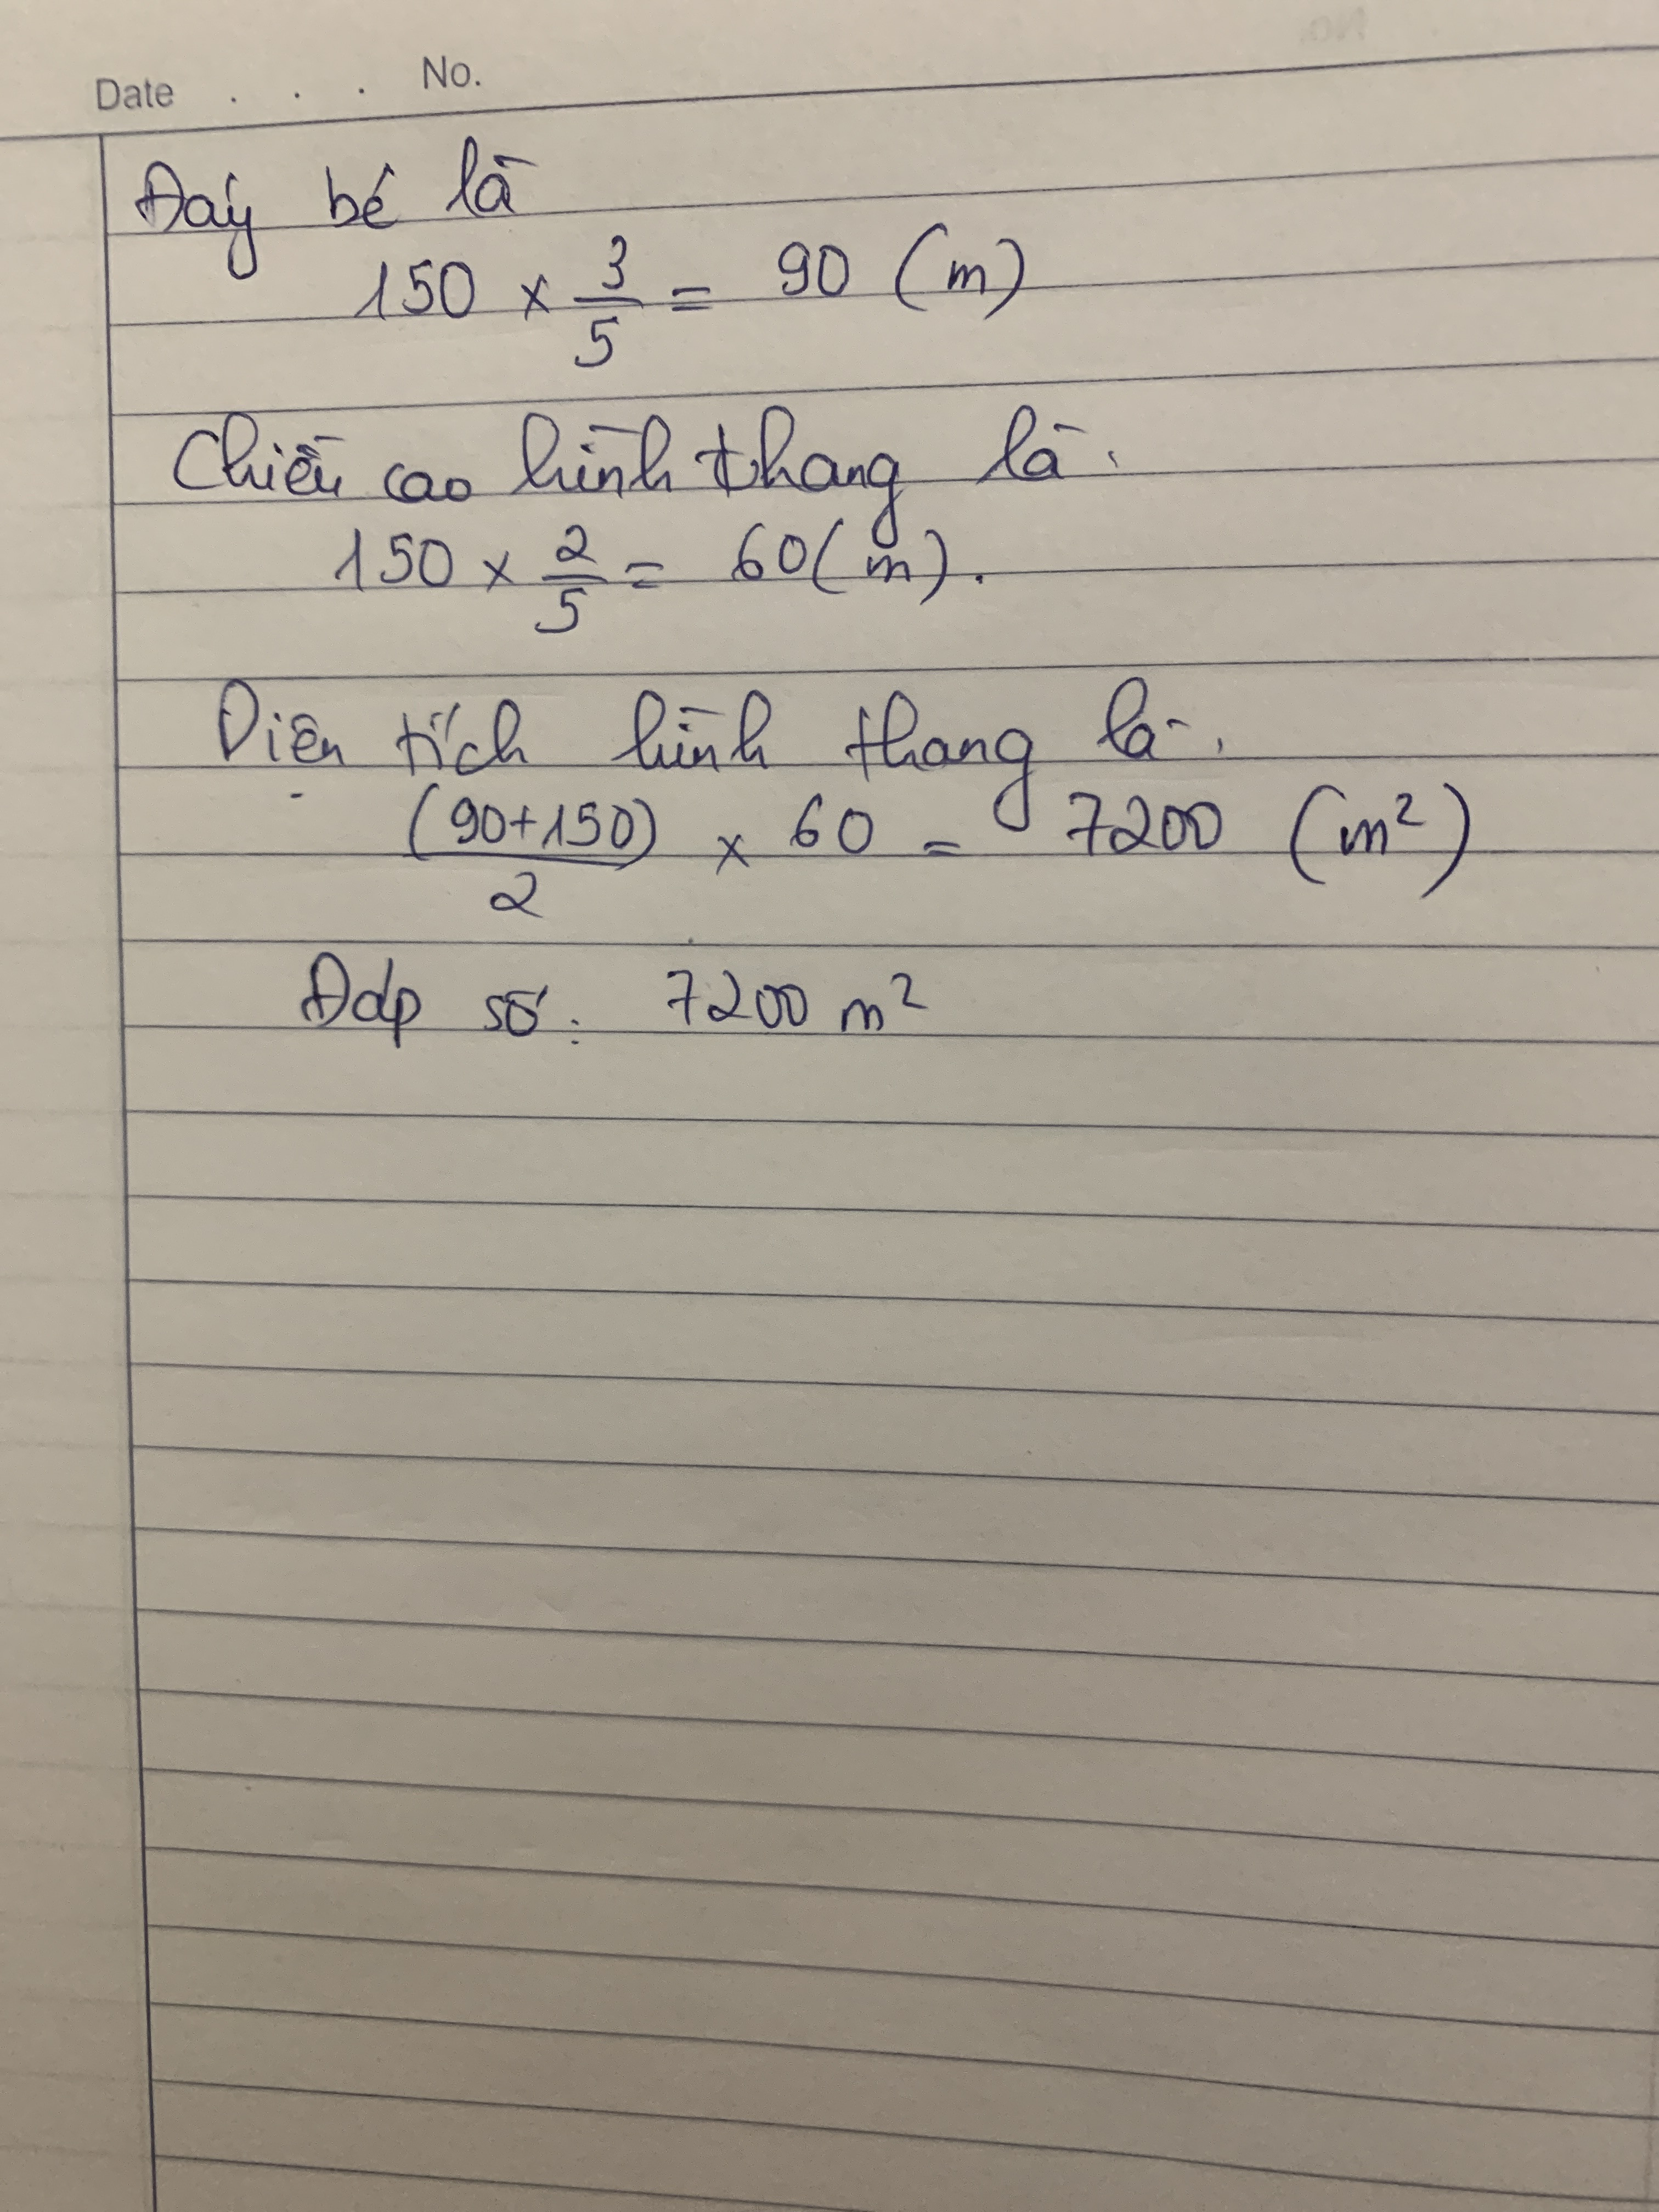 Date . . . No.
Đáy bé là
150 × 3/5 = 90 (m)
Chiều cao hình thang là.
150 × 2/5 = 60 (m).
Diện tích hình thang là.
(90+150)/2 × 60 = 7200 (m²)
Đáp số: 7200 m²